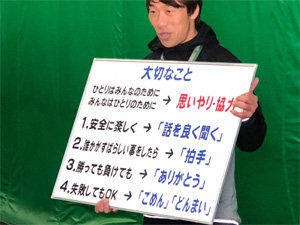 大切なこと
ひとりはみんなのために
みんなはひとりのために → 思いやり・協力
1.安全に楽しく → 「話を良く聞く」
2.誰かがすばらしい事をしたら → 「拍手」
3.勝っても負けても → 「ありがとう」
4.失敗してもOK → 「ごめん」「どんまい」